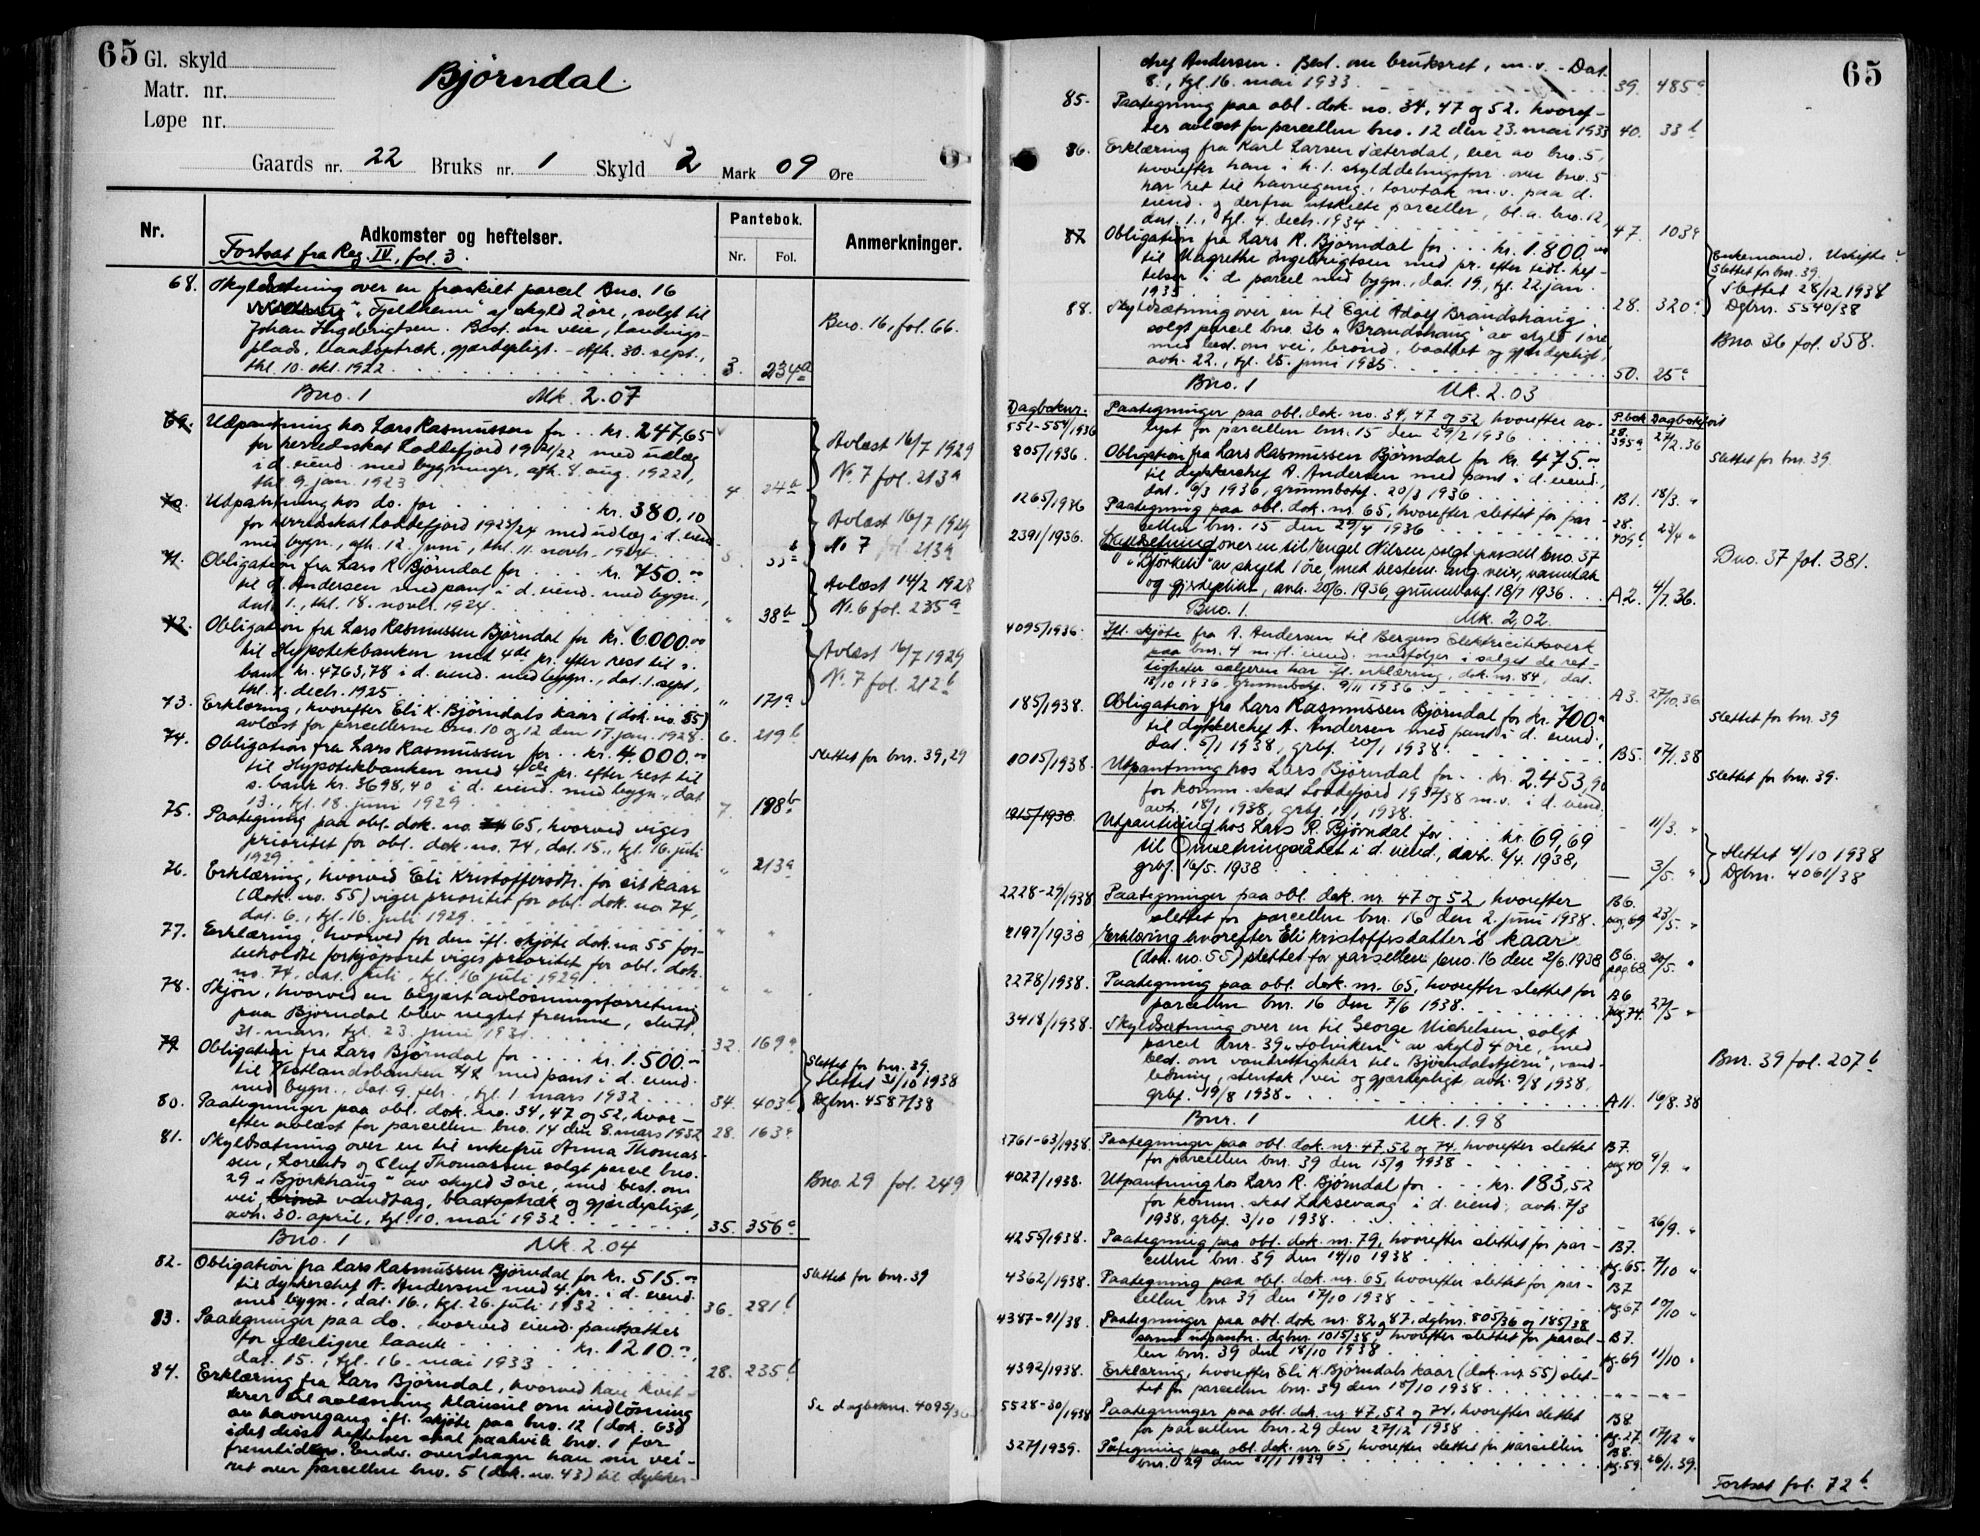 65
Gl. skyld
Matr. nr.
Løpe nr.
Bjørndal
Gaards nr. 22 Bruks nr. 1 Skyld 2 Mark 09 Øre
Nr.
Adkomster og heftelser.
Pantebok.
Nr. Fol.
Anmerkninger.
Fortsat fra Reg IV, fol. 3.
68. Skyldsætning over en fraskilt parcel Bno. 16
"Fjeldheim" af skyld 2 øre, solgt til
Johan Ingebrigtsen. Best. om veie, landings-
plads, baadoptræk, gjærdepligt. - Afh. 30. sept.,
thl. 10. okt. 1922 3. 234a
Bno. 16, fol. 66.
Bno. 1 Mk. 2.07
69. Udpantning hos Lars Rasmussen for kr. 247,65
for herredsskat Loddefjord 1921/22 med utlæg
i d. eiend. med bygninger, afh. 8. aug. 1922,
thl. 9. jan. 1923 4 24b
Avlæst 16/7 1929
No. 7 fol. 213a
70. Udpantning hos do. for kr. 380,10
for herredsskat Loddefjord 1923/24 med udlæg i d. eiend
med bygn., afh. 12. juni, thl. 11. novb. 1924
Avlæst 16/7 1929
No 7 fol. 213a
71. Obligation fra Lars R Bjørndal for kr. 750.00
til A. Andersen med pant i d. eiend. med bygn.,
dat. 1., thl. 18. novbr. 1924. " 38b
Avlæst 14/2 1928
No. 6 fol. 235a
72. Obligation fra Lars Rasmussen Bjørndal for kr. 6000.00
til Hypotekbanken med 4de pr. efter rest til s.
bank kr. 4763,78 i d. eiend. med bygn., dat. 1. sept.,
thl. 1. decb. 1925 " 171a
Avlæst 16/7 1929
No. 7 fol. 212b
73. Erklæring, hvorefter Eli K. Bjørndals kaar (dok. no. 55)
avlæst for parcellerne bno. 10 og 12 den 17. jan. 1928. 6. 219b
74. Obligation fra Lars Rasmussen for kr. 4.000.00
til Hypotekbanken med 4de pr. efter rest til
s. bank kr. 3698,40 i d. eiend. med bygn., dat.
13., tgl. 18. juni 1929 7. 198b
Slettet for bnr. 39, 29
75. Paategning paa obl. dok. no. 65, hvorved viges
prioritet for obl. dok. no. 74, dat. 15., tgl. 16. juli
1929 " 213a
76. Erklæring, hvorved Eli Kristoffersdtr. for sit kaar
(dok. no. 55) viger prioritet for obl. dok. no 74,
dat. 6., tgl. 16. juli 1929. " "
77. Erklæring, hvorved for den ifl. skjøte dok. no 55 for-
beholdte forkjøpsret viges prioritet for obl. dok.
no. 74, dat. juli, tgl. 16 juli 1929 " "
78. Skjøn, hvorved en begjært avløsningsforretning
paa Bjørndal blev negtet fremme, slutt.
31. mars, tgl. 23. juni 1931 32. 169a
79. Obligation fra Lars Bjørndal for kr. 1.500.-
til Vestlandsbanken A/S med pant i d. eiend.
med bygn., dat. 9. feb., tgl. 1. mars 1932 34. 403a
Slettet for bnr. 39.
Slettet 31/10 1938
Dgbnr. 4587/38
80. Paategninger paa obl. dok. no. 34, 47 og 52, hvor-
efter avlæst for parcellen bno. 14 den 8. mars 1932 28. 163a
81. Skyldsætning over en til enkefru Anna Thomas-
sen, Lorents og Oluf Thomassen solgt parcel bno.
29 "Bjørkhaug" av skyld 3 øre, med best. om
vei, vandtag, baatoptræk og gjærdepligt,
avh. 30. april, tgl. 10. mai 1932 35. 356a
Bno. 29 fol. 249
Bno. 1 Mk. 2.04
82. Obligation fra Lars Rasmussen Bjørndal for kr. 515.-
til dykkerchef A. Andersen med 4. pr. i d. eiend.
med bygn., dat. 16., tgl. 26. juli 1932 36. 281b
Slettet for bnr. 39
83. Paategninger paa do., hvorved eiend. pantsættes
for yderligere laante kr. 1210.-,
dat. 15., tgl. 16. mai 1933 28. 235b
84. Erklæring fra Lars Bjørndal, hvorved han kvit-
terer til avlæsning klausul om indløsning
av havnegang ifl. skjøte paa bno. 12 (dok. 63)
idet disse heftelser skal paahvile bno. 1 for
fremtiden. Endv. overdrager han sin vei-
ret over parcellen bno. 5 (dok. no. 43) til dykker-
Se dagboknr. 4095/36
65
chef Andersen. Best. om bruksret, m. v. - Dat.
8., tgl. 16. mai 1933. 39. 485a
85. Paategning paa obl. dok. no. 34, 47 og 52, hvoref-
ter avlæst for parcellen bno. 12 den 23. mai 1933 40. 33b
86. Erklæring fra Karl Larsen Sæterdal, eier av bno. 5,
hvorefter han i h. t. skylddelingsforr. over bno. 5
har ret til havnegang, torvtak m. v. paa d.
eiend. og derfra utskilte parceller, bl. a. bno. 12,
dat. 1., tgl. 4. decb. 1934 47. 103a
87 Obligation fra Lars R. Bjørndal for kr. 1.800.00
til Margrethe Ingebrigtsen med pr. efter tidl. hef-
telser i d. parcel med bygn., dat. 19., tgl. 22. jan.
1935 28. 320a
Enkemand. Uskifte
Slettet for bnr. 39.
Slettet 28/12 1938
Dgbnr. 5540/38
88. Skyldsætning over en til Egil Adolf Brandshaug
solgt parcel bno. 36 "Brandshaug" av skyld 1 øre
med best. om vei, brønd, baatfæt og gjærdepligt,
avh. 22., tgl. 25. juni 1935 50. 25a
Bno. 36 fol. 358.
Bno. 1 Mk. 2.03
Dagboknr. P.bok Dagbokført
552-554/1936 Paategninger paa obl. dok. no. 34, 47 og 52, hvorefter av-
lyst for parcellen bnr. 15 den 29/2 1936 28. 395a 27/2. 36
805/1936. Obligation fra Lars Rasmussen Bjørndal for kr. 475.00
til dykkerchef A. Andersen med pant i d. eiend.,
dat. 6/3 1936, grunnbokf. 20/3 1936 B1. 18/3. "
Slettet for bnr. 39.
1265/1936 Paategning paa obl. dok. nr. 65, hvorefter slettet for par-
cellen bnr. 15 den 29/4 1936 28. 409b 23/4 "
2391/1936. Skyldsetning over en til Engel Nilsen solgt parsell bno. 37
"Bjørkli" av skyld 1 øre, med bestem. ang. veier, vanntak
og gjerdeplikt, avh. 20/6. 1936, grunnbokf. 18/7 1936. A2. 4/7. 36.
Bno. 37 fol. 381.
Bno. 1. Mk. 2,02.
4095/1936. Ifl. skjøte fra A. Andersen til Bergens Elektricitetsverk
paa bnr. 4 m. fl. eiend. medfølger i salget de ret-
tigheter sælgeren har ifl. erklæring, dok. nr. 84, dat.
18/10 1936. grunnbokf. 9/11 1936 A3. 27/10. 36
185/1938. Obligation fra Lars Rasmussen Bjørndal for kr. 700.-
til dykkerchef A. Andersen med pant i d. eiend.,
dat. 5/1 1938, grbf. 20/1 1938. B5. 17/1. 38
Slettet for bnr. 39
1015/1938. Utpantning hos Lars Bjørndal for kr. 2.453,90
for komm. skat Loddefjord 1937/38 m. v. i d. eiend.
avh. 18/1 1938, grbf. 1938. - 11/3. "
Slettet for bnr. 39.
1915/1938 Utpantning hos Lars R. Bjørndal for kr. 69,69
til Omsetningsrådet i d. eiend., avh. 6/4. 1938,
grbf. 16/5. 1938 - 3/5. "
Slettet 4/10 1938
Dgbnr. 4061/38
2228-29/1938 Paategninger paa obl. dok. nr. 47 og 52, hvorefter
slettet for parcellen bnr. 16 den 2. juni 1938. B6. pag. 69 23/5. "
2197/1938 Erklæring hvorefter Eli Kristoffersdatter's kaar
(dok. no. 55) slettet for parsellen bno. 16 den 2/6. 1938 B6 pag 68. 20/5. "
2278/1938. Paategning paa obl. dok. nr. 65, hvorefter slettet for
parcellen bnr. 16 den 7/6 1938. B6 pg 74. 27/5 "
3418/1938. Skyldsætning over en til George Michelsen solgt
parcel bnr. 39 "Solviken" av skyld 4 øre, med
best. om vandrettigheter til "Bjørndalstjern", vand-
ledning, stentak, vei og gjærdepligt, avh. 9/8 1938,
grbf. 19/8 1938. A11. 16/8. 38
Bnr. 39 fol. 207b
Bnr. 1 Mk. 1.98
3761-63/1938. Paategninger paa obl. dok. nr. 47, 52 og 74, hvorefter slettet
for parcellen bnr. 39 den 15/9 1938 B7. pg 40 9/9. "
4027/1938. Utpantning hos Lars R. Bjørndal for kr. 183,52
for komm. skat Laksevaag i d. eiend., avh. 7/3
1938, grbf. 3/10 1938. - 26/9. "
4255/1938. Paategning paa obl. dok. nr. 79, hvorefter slettet for par-
cellen bnr. 39 den 14/10 1938 B7. pg. 65. 7/10 "
4362/1938. Paategning paa obl. dok. nr. 65, hvorefter slettet for par-
cellen bnr. 39 den 17/10 1938 B7 pg 67 "
4387-91/38. Paategninger paa obl. dok. nr. 82 og 87, dgbnr. 805/36 og 185/38
samt utpantn. dgbnr. 1015/38, hvorefter slettet for parcel-
len bnr. 39 den 18/10 1938 B7. pg. 69 "
4392/1938. Erklæring, hvorefter Eli K. Bjørndals kaar (dok. nr. 55) slet-
tet for parcellen bnr. 39 den 18/10 1938 - " - - " -
5528-30/1938 Paategninger paa obl. dok. nr. 47, 52 og 74, hvorefter slettet
for parcellen bnr. 29 den 27/12 1938 B8. pg. 27. 17/12 "
327/1939. Påtegning paa obl. dok. nr. 65, hvorefter slettet for parcellen
bnr. 29 den 31/1 1939 B8. pg. 59. 26/1. 39.
Fortsat fol. 72b